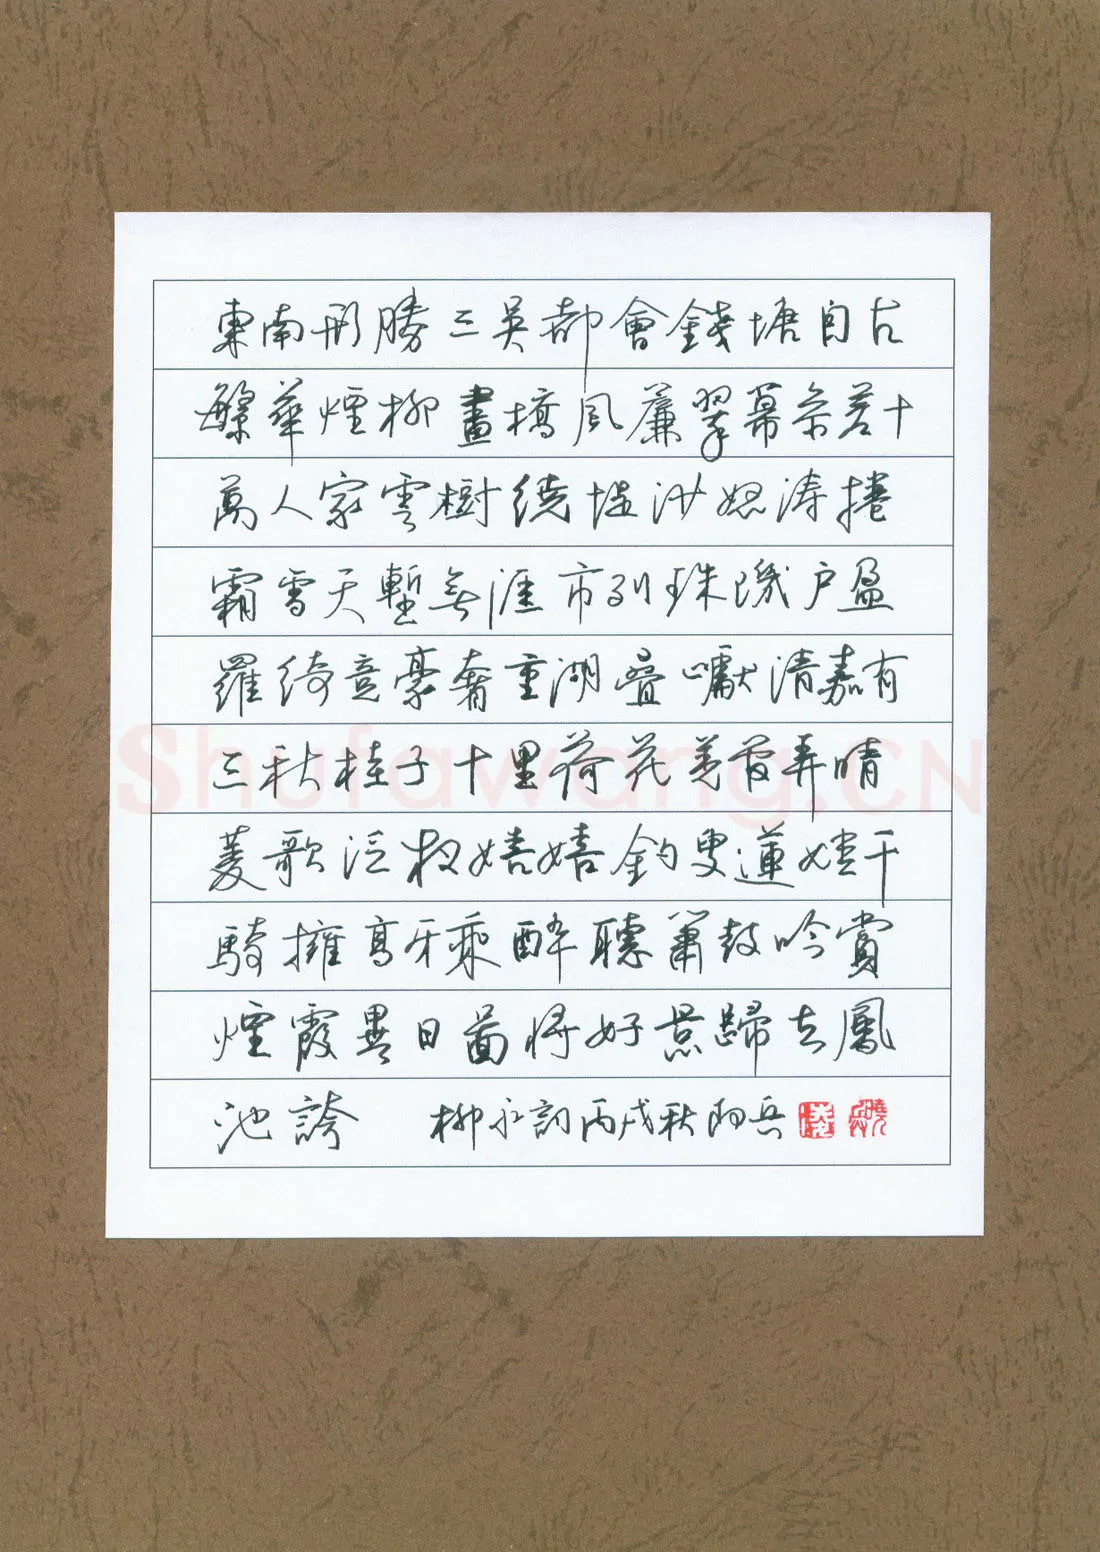 東南形勝三吳都會錢塘自古
繁華煙柳畫橋風簾翠幕參差十
萬人家雲樹繞堤沙怒濤捲
霜雪天塹無涯市列珠璣户盈
羅綺競豪奢重湖疊巘清嘉有
三秋桂子十里荷花羌管弄晴
菱歌泛夜嬉嬉釣叟蓮娃千
騎擁高牙乘醉聽簫鼓吟賞
煙霞異日圖將好景歸去鳳
池誇 柳永詞丙戌秋向兵
Shufawang.CN